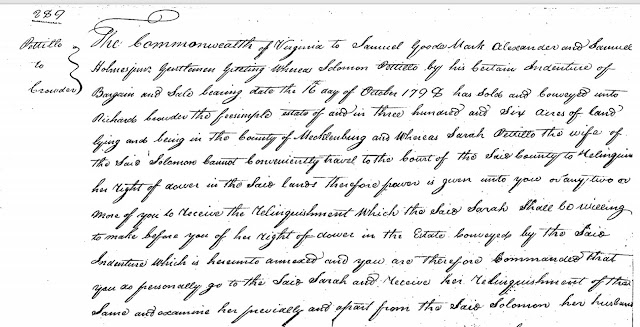 289
Pettillo
to
Crowder
The Commonwealth of Virginia to Samuel Goode Mark Alexander and Samuel
Holmes junr. Gentlemen Greeting Whereas Solomon Pettillo by his Certain Indenture of
Bargain and Sale bearing date the 16 day of October 1798 has Sold and Conveyed unto
Richard Crowder the feesimple estate of and in three hundred and Six Acres of land
lying and being in the County of Mecklenburg and Whereas Sarah Pettillo the wife of
the Said Solomon Cannot Conveniently travel to the Court of the Said County to Relinquish
her right of dower in the Said lands therefore power is given unto you or any two or
more of you to Receive the Relinquishment Which the Said Sarah Shall be willing
to make before you of her right of dower in the Estate Conveyed by the Said
Indenture Which is hereunto annexed and you are therefore Commanded that
you do personally go to the Said Sarah and receive her Relinquishment of the
Same and examine her previally and apart from the Said Solomon her husband